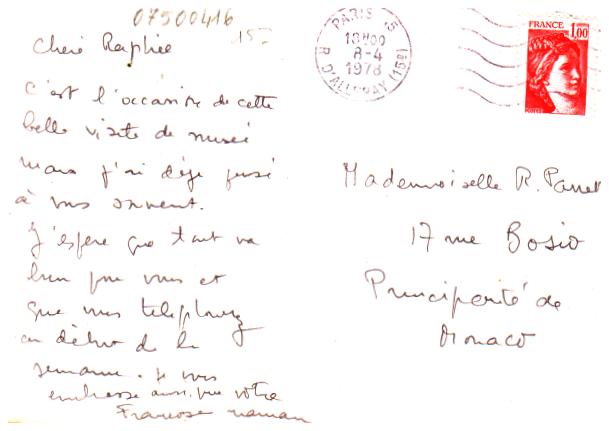 07500416
15-
Chère Raphée
C'est l'occasion de cette
belle visite de musée
mais j'ai déjà pensé
à vous souvent.
J'espère que tout va
bien pour vous et
que vous
au début de la
semaine. Je vous
embrasse ainsi que votre
Françoise maman
PARIS 15
18H00
8-4
1978
R. D'ALLERAY (15e)
FRANCE
1,00
POSTES
Mademoiselle R. Pannet
17 rue Bosio
Principauté de
Monaco